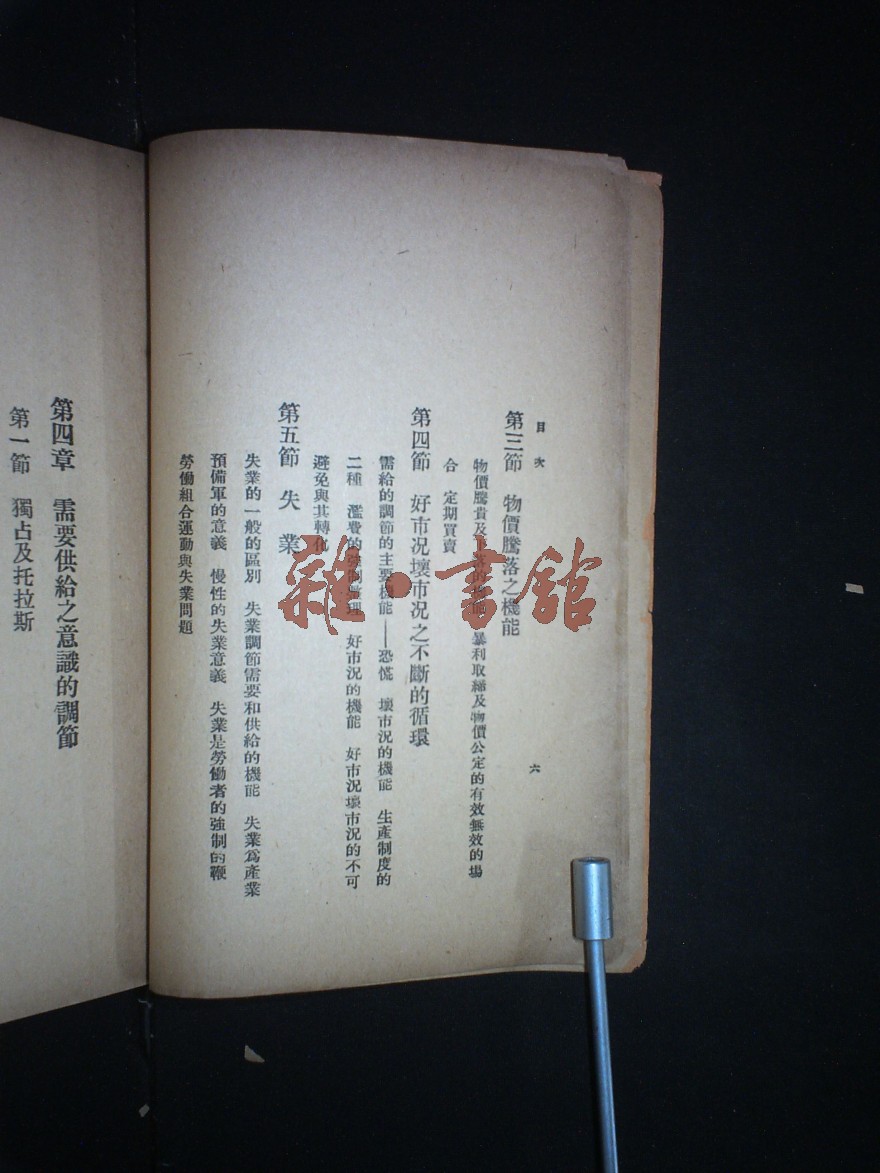 目次
六
第三節 物價騰落之機能
物價騰貴及 落的機能 暴利取締及物價公定的有效無效的場
合 定期買賣
第四節 好市况壞市况之不斷的循環
需給的調節的主要機能——恐慌 壞市况的機能 生產制度的
二種 濫費的強制整理 好市况的機能 好市况壞市况的不可
避免與其轉化
第五節 失業
失業的一般的區別 失業調節需要和供給的機能 失業爲產業
預備軍的意義 慢性的失業意義 失業是勞働者的強制的鞭
勞働組合運動與失業問題
第四章 需要供給之意識的調節
第一節 獨占及托拉斯
雜·書館